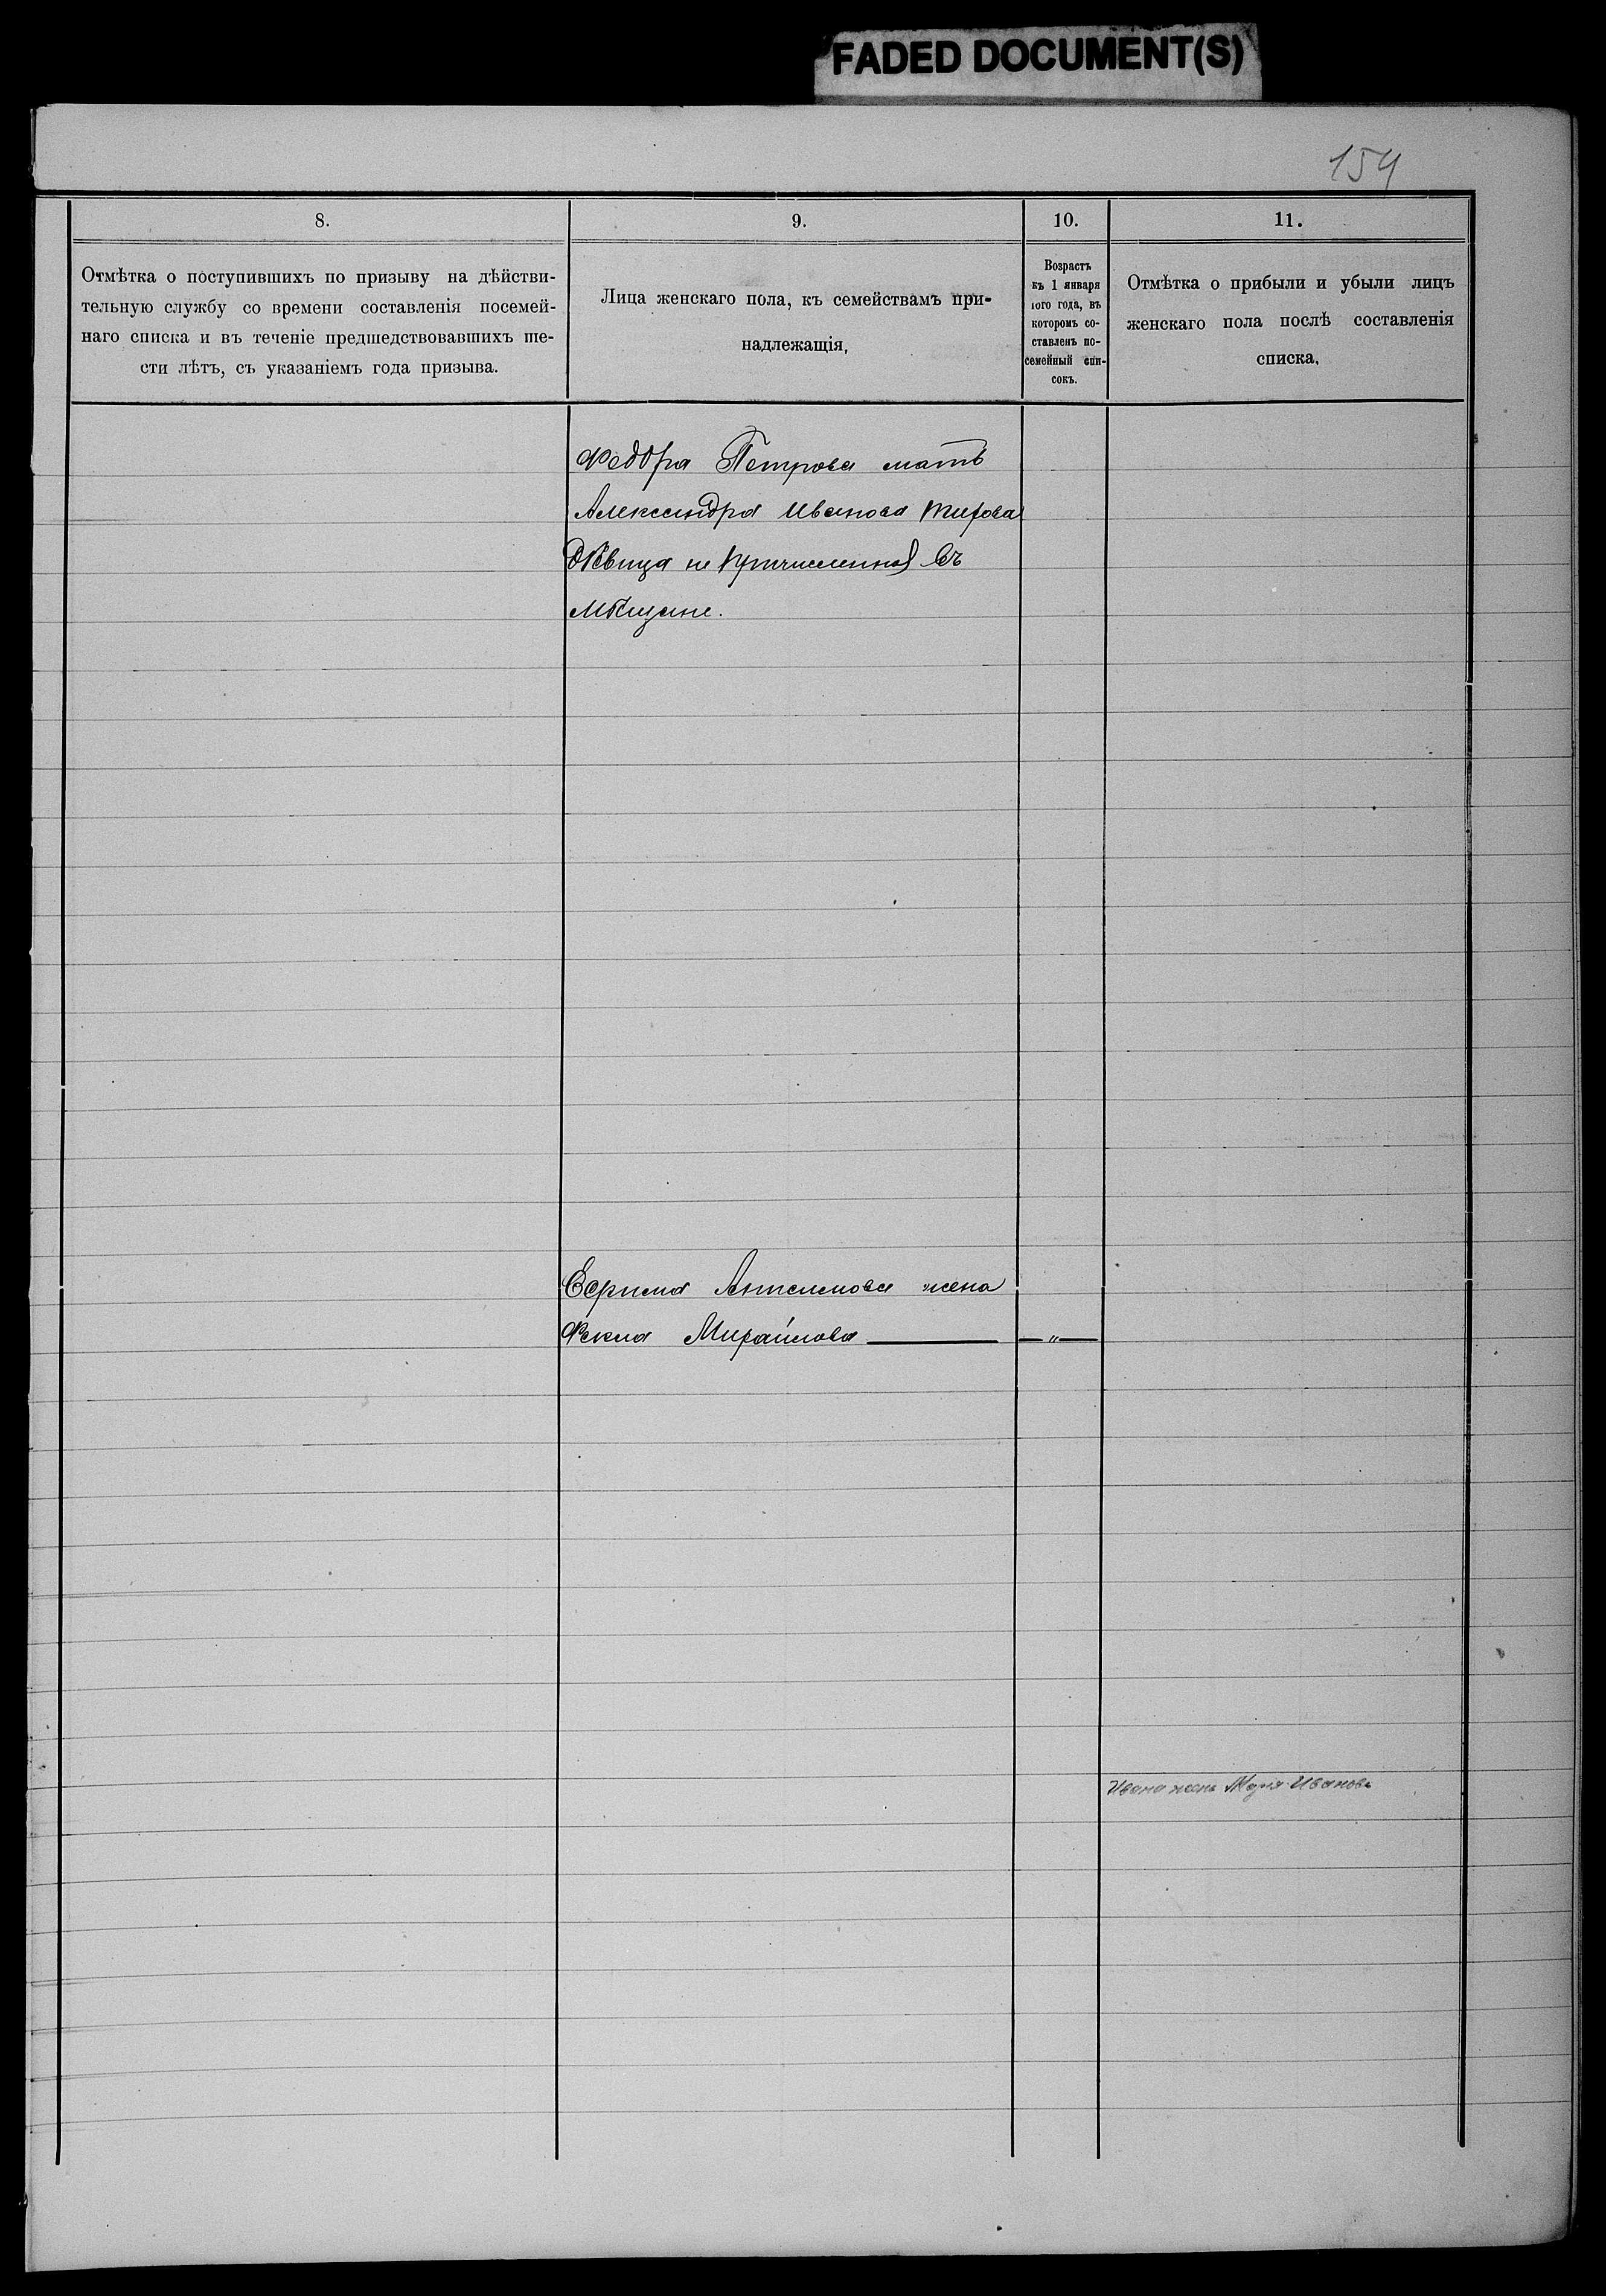 FADED DOCUMENT(S)
154
8.
Отмѣтка о поступившихъ по призыву на дѣйстви-
тельную службу со времени составленія посемей-
наго списка и въ теченіе предшедствовавшихъ ше-
сти лѣтъ, съ указаніемъ года призыва.
9.
Лица женскаго пола, къ семействамъ при-
надлежащія,
10.
Возрастъ
къ 1 января
того года, въ
которомъ со-
ставленъ по-
семейный спи-
сокъ.
11.
Отмѣтка о прибыли и убыли лицъ
женскаго пола послѣ составленія
списка,
Федора Петрова мать
Александра Иванова
дѣвица не причисленная въ
мѣщане.
жена
Фекла Михайлова — „ —
Ивана жена Марія Иванова